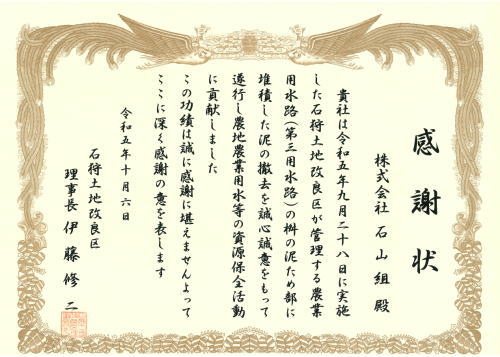 感謝状
株式会社 石山組 殿
貴社は令和五年九月二十八日に実施
した石狩土地改良区が管理する農業
用水路(第三用水路)の桝の泥ため部に
堆積した泥の撤去を誠心誠意をもって
遂行し農地農業用水等の資源保全活動
に貢献しました
この功績は誠に感謝に堪えませんよって
ここに深く感謝の意を表します
令和五年十月六日
石狩土地改良区
理事長 伊藤修二